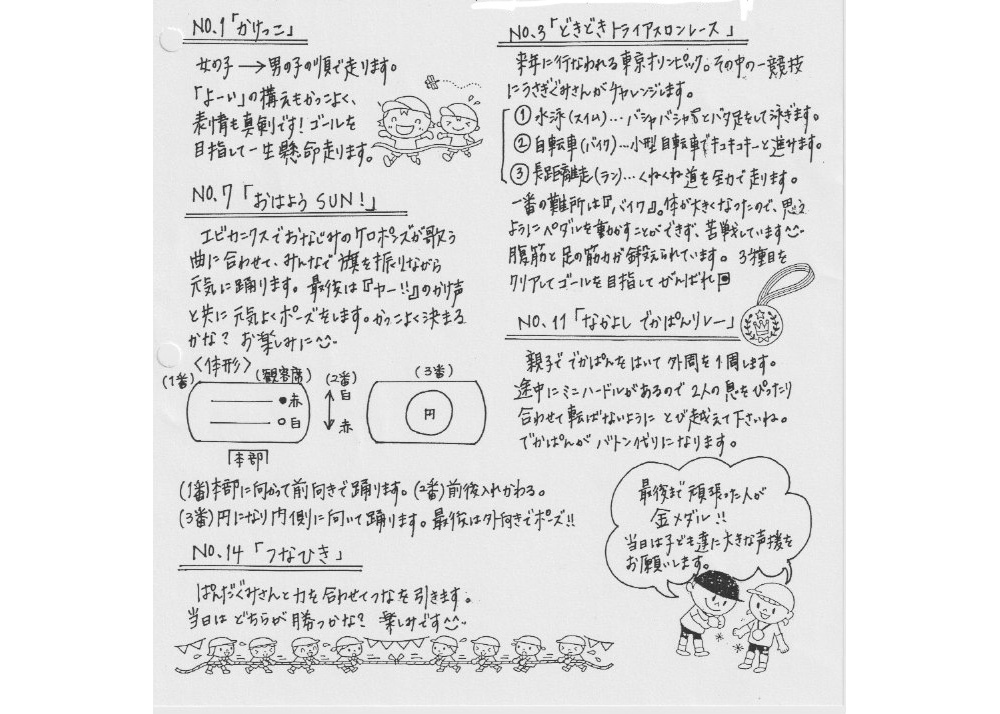 NO.1「かけっこ」
女の子→男の子の順で走ります。
「よーい」の構えもかっこよく、
表情も真剣です！ゴールを
目指して一生懸命走ります。
NO.7「おはようSUN！」
エビカニクスでおなじみのケロポンズが歌う
曲に合わせて、みんなで旗を振りながら
元気に踊ります。最後は『ヤー!!』のかけ声
と共に元気よくポーズをします。かっこよく決まる
かな？お楽しみに
〈体形〉
(1番) (観客席) (2番) (3番)
●赤 白 円
○白 赤
本部
(1番)本部に向かって前向きで踊ります。(2番)前後入れかわる。
(3番)円になり内側に向いて踊ります。最後は外向きでポーズ!!
NO.14「つなひき」
ぱんだぐみさんと力を合わせてつなを引きます。
当日はどちらが勝つかな？楽しみです
NO.3「どきどきトライアスロンレース」
来年に行なわれる東京オリンピック。その中の一競技
にうさぎぐみさんがチャレンジします。
①水泳(スイム)…バシャバシャ音とバタ足をして泳ぎます。
②自転車(バイク)…小型自転車でキュキュキーと進みます。
③長距離走(ラン)…くねくね道を全力で走ります。
一番の難所は『バイク』。体が大きくなったので、思う
ようにペダルを動かすことができず、苦戦しています
腹筋と足の筋力が鍛えられています。3種目を
クリアしてゴールを目指してがんばれ
NO.11「なかよしでかぱんリレー」
親子ででかぱんをはいて外周を1周します。
途中にミニハードルがあるので2人の息をぴったり
合わせて転ばないようにとび越えて下さいね。
でかぱんがバトン代りになります。
最後まで頑張った人が
金メダル!!
当日は子ども達に大きな声援を
お願いします。